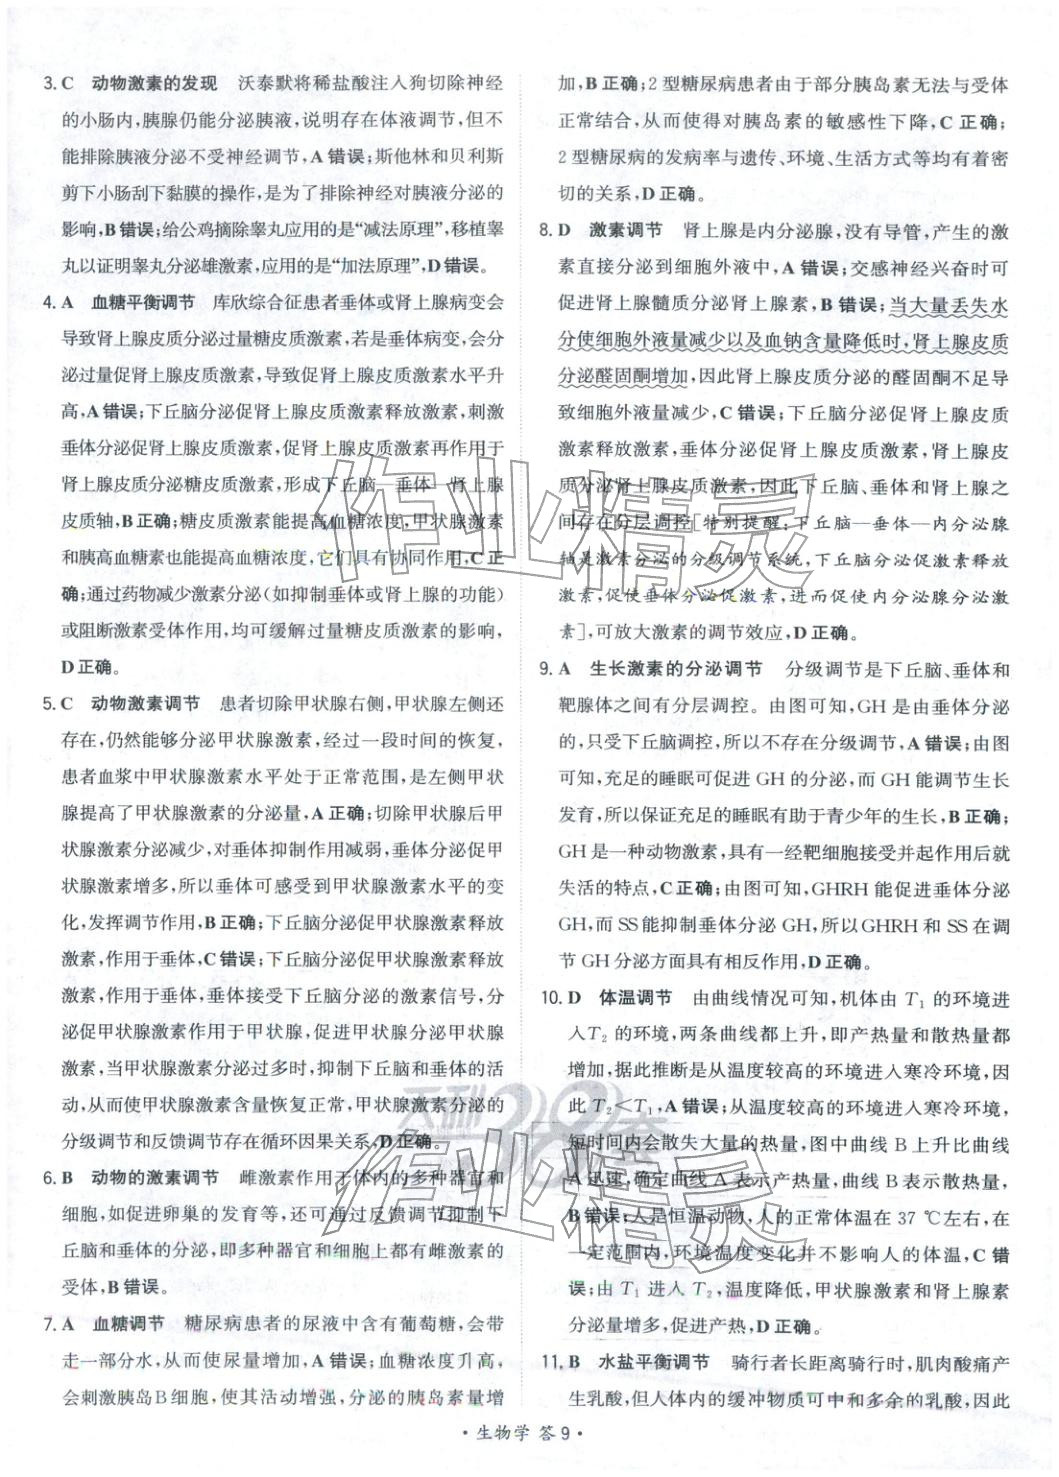 3. C 动物激素的发现 沃泰默将稀盐酸注入狗切除神经
的小肠内,胰腺仍能分泌胰液,说明存在体液调节,但不
能排除胰液分泌不受神经调节,A错误;斯他林和贝利斯
剪下小肠刮下黏膜的操作,是为了排除神经对胰液分泌的
影响,B错误;给公鸡摘除睾丸应用的是“减法原理”,移植睾
丸以证明睾丸分泌雄激素,应用的是“加法原理”,D错误。
4. A 血糖平衡调节 库欣综合征患者垂体或肾上腺病变会
导致肾上腺皮质分泌过量糖皮质激素,若是垂体病变,会分
泌过量促肾上腺皮质激素,导致促肾上腺皮质激素水平升
高,A错误;下丘脑分泌促肾上腺皮质激素释放激素,刺激
垂体分泌促肾上腺皮质激素,促肾上腺皮质激素再作用于
肾上腺皮质分泌糖皮质激素,形成下丘脑—垂体—肾上腺
皮质轴,B正确;糖皮质激素能提高血糖浓度,甲状腺激素
和胰高血糖素也能提高血糖浓度,它们具有协同作用,C正
确;通过药物减少激素分泌(如抑制垂体或肾上腺的功能)
或阻断激素受体作用,均可缓解过量糖皮质激素的影响,
D正确。
5. C 动物激素调节 患者切除甲状腺右侧,甲状腺左侧还
存在,仍然能够分泌甲状腺激素,经过一段时间的恢复,
患者血浆中甲状腺激素水平处于正常范围,是左侧甲状
腺提高了甲状腺激素的分泌量,A正确;切除甲状腺后甲
状腺激素分泌减少,对垂体抑制作用减弱,垂体分泌促甲
状腺激素增多,所以垂体可能感受到甲状腺激素水平的变
化,发挥调节作用,B正确;下丘脑分泌促甲状腺激素释放
激素,作用于垂体,C错误;下丘脑分泌促甲状腺激素释放
激素,作用于垂体,垂体接受下丘脑分泌的激素信号,分
泌促甲状腺激素作用于甲状腺,促进甲状腺分泌甲状腺
激素,当甲状腺激素分泌过多时,抑制下丘脑和垂体的活
动,从而使甲状腺激素含量恢复正常,甲状腺激素分泌的
分级调节和反馈调节存在循环因果关系,D正确。
6. B 动物的激素调节 雌激素作用于体内的多种器官和
细胞,如促进卵巢的发育等,还可通过反馈调节抑制下
丘脑和垂体的分泌,即多种器官和细胞上都有雌激素的
受体,B错误。
7. A 血糖调节 糖尿病患者的尿液中含有葡萄糖,会带
走一部分水,从而使尿量增加,A错误;血糖浓度升高,
会刺激胰岛B细胞,使其活动增强,分泌的胰岛素量增
加,B正确;2型糖尿病患者由于部分胰岛素无法与受体
正常结合,从而使得对胰岛素的敏感性下降,C正确;
2型糖尿病的发病率与遗传、环境、生活方式等均有着密
切的关系,D正确。
8. D 激素调节 肾上腺是内分泌腺,没有导管,产生的激
素直接分泌到细胞外液中,A错误;交感神经兴奋时可
促进肾上腺髓质分泌肾上腺素,B错误;当大量丢失水
分使细胞外液量减少以及血钠含量降低时,肾上腺皮质
分泌醛固酮增加,因此肾上腺皮质分泌的醛固酮不足导
致细胞外液量减少,C错误;下丘脑分泌促肾上腺皮质
激素释放激素,垂体分泌促肾上腺皮质激素,肾上腺皮
质分泌肾上腺皮质激素,因此下丘脑、垂体和肾上腺之
间存在分层调控[特别提醒:下丘脑—垂体—内分泌腺
轴是激素分泌的分级调节系统,下丘脑分泌促激素释放
激素,促使垂体分泌促激素,进而促使内分泌腺分泌激
素],可放大激素的调节效应,D正确。
9. A 生长激素的分泌调节 分级调节是下丘脑、垂体和
靶腺体之间有分层调控。由图可知,GH是由垂体分泌
的,只受下丘脑调控,所以不存在分级调节,A错误;由图
可知,充足的睡眠可促进GH的分泌,而GH能调节生长
发育,所以保证充足的睡眠有助于青少年的生长,B正确;
GH是一种动物激素,具有一经靶细胞接受并起作用后就
失活的特点,C正确;由图可知,GHRH能促进垂体分泌
GH,而SS能抑制垂体分泌GH,所以GHRH和SS在调
节GH分泌方面具有相反作用,D正确。
10. D 体温调节 由曲线情况可知,机体由T₁的环境进
入T₂的环境,两条曲线都上升,即产热量和散热量都
增加,据此推断是从温度较高的环境进入寒冷环境,因
此T₂<T₁,A错误;从温度较高的环境进入寒冷环境,
短时间内会散失大量的热量,图中曲线B上升比曲线
A迅速,确定曲线A表示产热量,曲线B表示散热量,
B错误;人是恒温动物,人的正常体温在37℃左右,在
一定范围内,环境温度变化并不影响人的体温,C错
误;由T₁进入T₂,温度降低,甲状腺激素和肾上腺素
分泌量增多,促进产热,D正确。
11. B 水盐平衡调节 骑行者长距离骑行时,肌肉酸痛产
生乳酸,但人体内的缓冲物质可中和多余的乳酸,因此
作业精灵
天利38套
作业精灵
·生物学 答9·